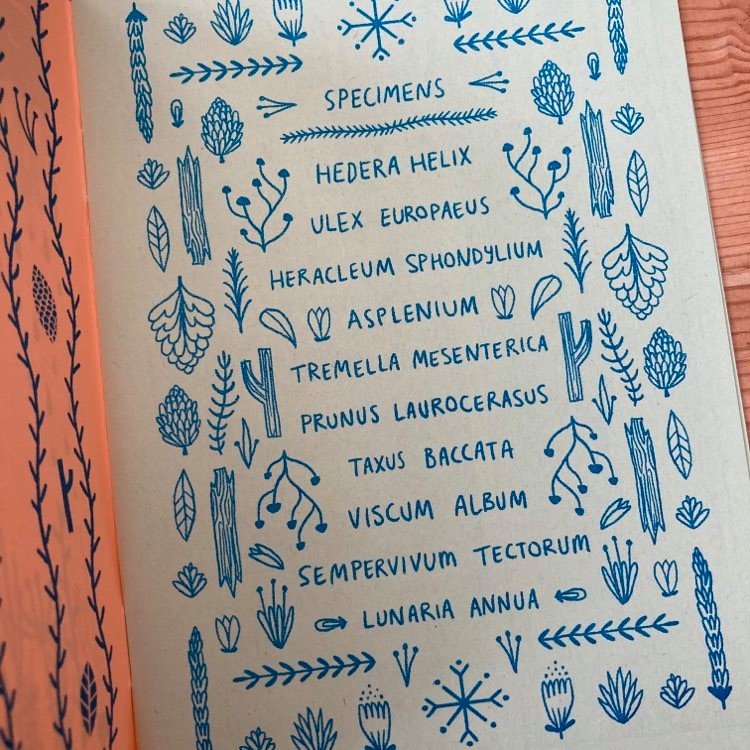 SPECIMENS
HEDERA HELIX
ULEX EUROPAEUS
HERACLEUM SPHONDYLIUM
ASPLENIUM
TREMELLA MESENTERICA
PRUNUS LAUROCERASUS
TAXUS BACCATA
VISCUM ALBUM
SEMPERVIVUM TECTORUM
LUNARIA ANNUA